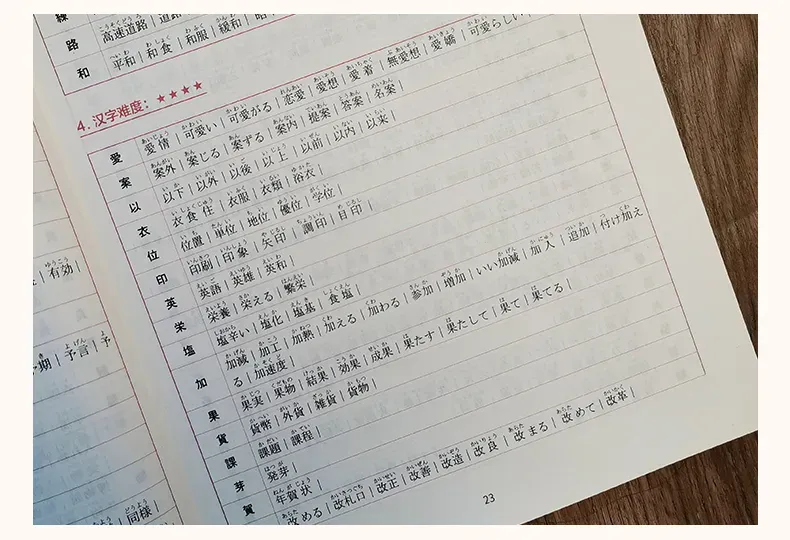 路 高速道路 | 道路
和 平和 | 和食 | 和服 | 緩和
4. 汉字难度：★★★★
愛 愛情 | 可愛い | 可愛がる | 恋愛 | 愛想 | 愛着 | 無愛想 | 愛嬌 | 可愛らしい |
案 案外 | 案じる | 案ずる | 案内 | 提案 | 答案 | 名案 |
以 以下 | 以外 | 以後 | 以上 | 以前 | 以内 | 以来 |
衣 衣食住 | 衣服 | 衣類 | 浴衣 |
位 位置 | 単位 | 地位 | 優位 | 学位 |
印 印刷 | 印象 | 矢印 | 調印 | 目印 |
英 英語 | 英雄 | 英和 |
栄 栄養 | 栄える | 繁栄 |
塩 塩辛い | 塩化 | 塩基 | 食塩 |
加 加減 | 加工 | 加熱 | 加える | 加わる | 参加 | 増加 | いい加減 | 加入 | 追加 | 付け加え
る | 加速度 |
果 果実 | 果物 | 結果 | 効果 | 成果 | 果たす | 果たして | 果て | 果てる |
貨 貨幣 | 外貨 | 雑貨 | 貨物 |
課 課題 | 課程 |
芽 発芽 |
賀 年賀状 |
改める | 改札口 | 改正 | 改善 | 改造 | 改良 | 改まる | 改めて | 改革 |
23
| 有効 |
期 | 予言 | 予
| 同様 |